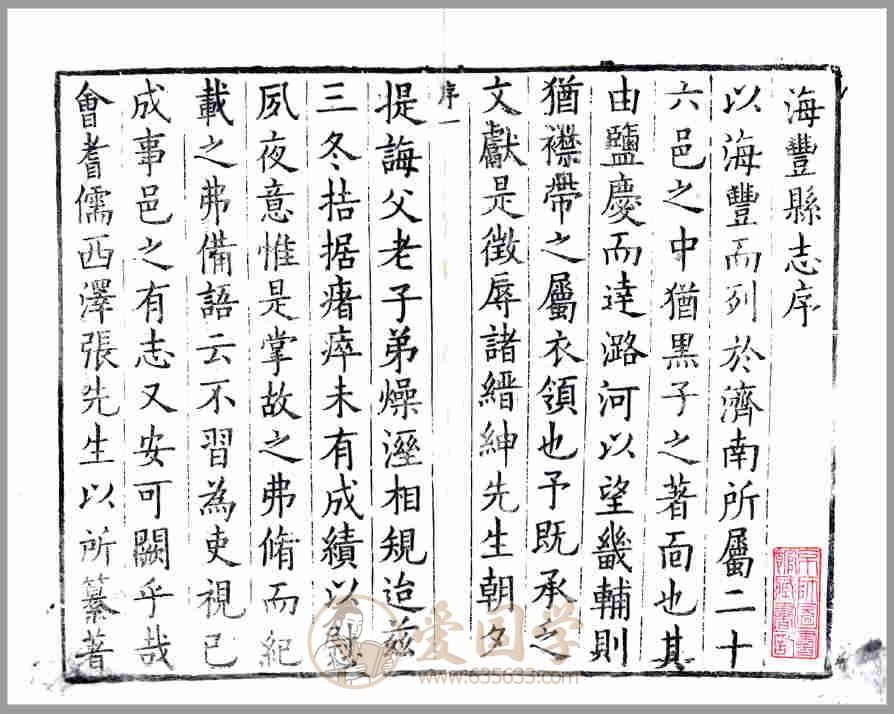 海豐縣志序
以海豐而列於濟南所屬二十
六邑之中猶黒子之著靣也其
由鹽慶而達潞河以望畿輔則
猶襟帶之屬衣領也予旣承之
文獻是徴辱諸縉紳先生朝夕
序一
提誨父老子弟燥溼相規迨兹
三冬拮据瘏瘁未有成績以慰
夙夜意惟是掌故之弗脩而紀
載之弗備語云不習為吏視已
成事邑之有志又安可闕乎哉
會耆儒西澤張先生以所纂著
京師圖書
館藏書印
爱国学
www.635633.com